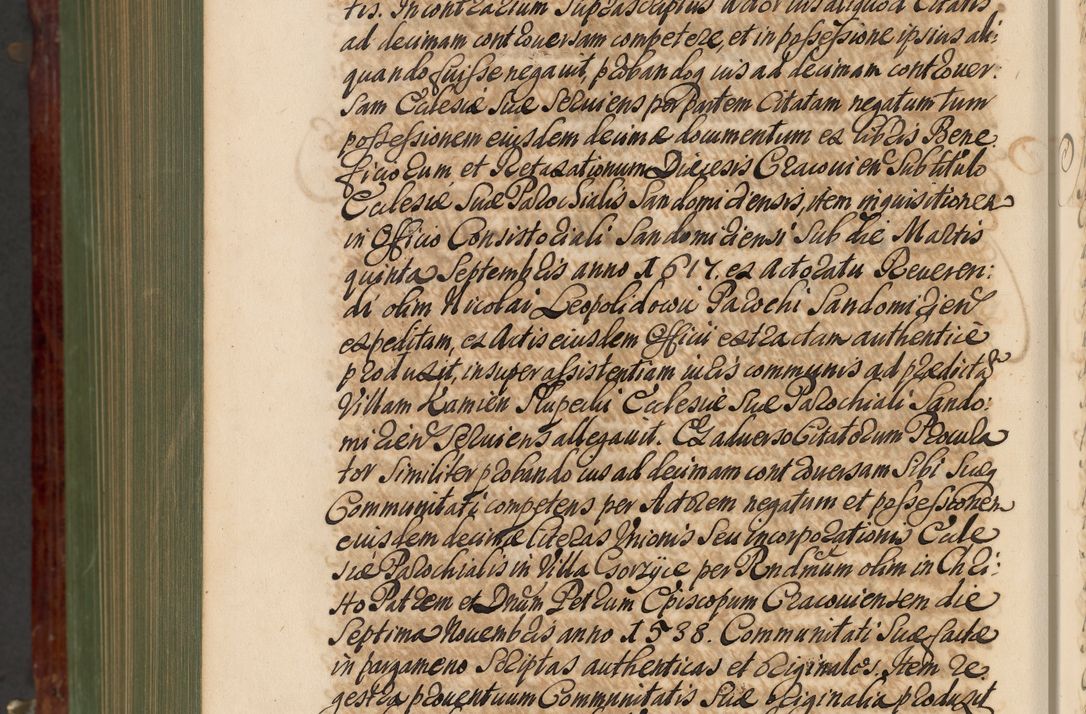 tis. In contrarium suprascriptus Actor ius aliquod Citatis
ad decimam controuersam competere, et in possessione ipsius ali:
quando fuisse negauit, probandoq ius ad decimam controuer:
sam Eclesiæ suæ seruiens per partem Citatam negatum tum
possessionem eiusdem decimæ documentum ex libris Bene:
ficiorum et Retaxationum Diæcesis Cracouien sub titulo
Eclesiæ suæ Parochialis Sandomiriensis, item inquisitiones
in Officio Consistoriali Sandomiriensi sub die Martis
quinta Septembris anno 1617. ex Actoratu Reueren:
di olim Nicolai Leopolidowic Parochi Sandomirien
expeditam, ex Actis eiusdem Officii extractam authenticè
produxit, insuper assistentiam iuris communis ad prædictã
Villam Kamien Słupecki Eclesiæ suæ Parochiali Sando:
mirien seruiens allegauit. Ex aduerso Citatorum Procura
tor similiter probando ius ad decimam controuersam sibi suæq
Communitati competens per Actorem negatum et possessionem
eiusdem decimæ literas Unionis seu incorporationis Ecle
siæ Parochialis in Villa Gorzyce per Rndmum olim in Chri:
sto Patrem et Dnum Petrum Episcopum Cracouiensem die
Septima Nouembris anno 1538. Communitati suæ factæ
in pargameno scriptas authenticas et originales. Item re:
gestra prouentuum Communitatis suæ originalia produxit